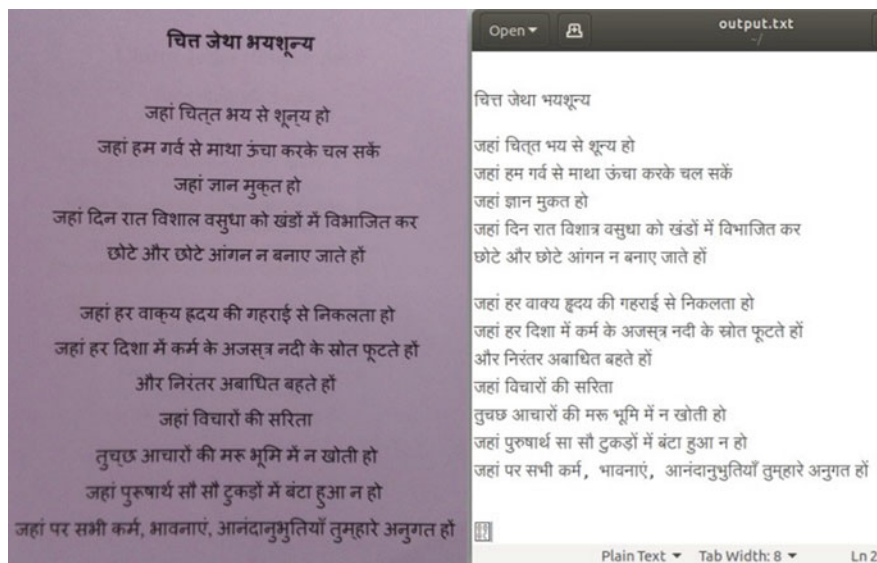 चित्त जेथा भयशून्य
जहां चित्‌त भय से शून्‌य हो
जहां हम गर्व से माथा ऊंचा करके चल सकें
जहां ज्ञान मुक्‌त हो
जहां दिन रात विशाल वसुधा को खंडों में विभाजित कर
छोटे और छोटे आंगन न बनाए जाते हों
जहां हर वाक्‌य ह्रदय की गहराई से निकलता हो
जहां हर दिशा में कर्म के अजस्‌त्र नदी के स्रोत फूटते हों
और निरंतर अबाधित बहते हों
जहां विचारों की सरिता
तुच्‌छ आचारों की मरू भूमि में न खोती हो
जहां पुरूषार्थ सौ सौ टुकड़ों में बंटा हुआ न हो
जहां पर सभी कर्म, भावनाएं, आनंदानुभुतियाँ तुम्‌हारे अनुगत हों
Open output.txt
~/
चित्त जेथा भयशून्य
जहां चित्‌त भय से शून्य हो
जहां हम गर्व से माथा ऊंचा करके चल सकें
जहां ज्ञान मुकत हो
जहां दिन रात विशात्र वसुधा को खंडों में विभाजित कर
छोटे और छोटे आंगन न बनाए जाते हों
जहां हर वाक्य हृदय की गहराई से निकलता हो
जहां हर दिशा में कर्म के अजस्‌त्र नदी के स्रोत फूटते हों
और निरंतर अबाधित बहते हों
जहां विचारों की सरिता
तुचछ आचारों की मरू भूमि में न खोती हो
जहां पुरुषार्थ सा सौ टुकड़ों में बंटा हुआ न हो
जहां पर सभी कर्म, भावनाएं, आनंदानुभुतियाँ तुम्‌हारे अनुगत हों
Plain Text Tab Width: 8 Ln 2